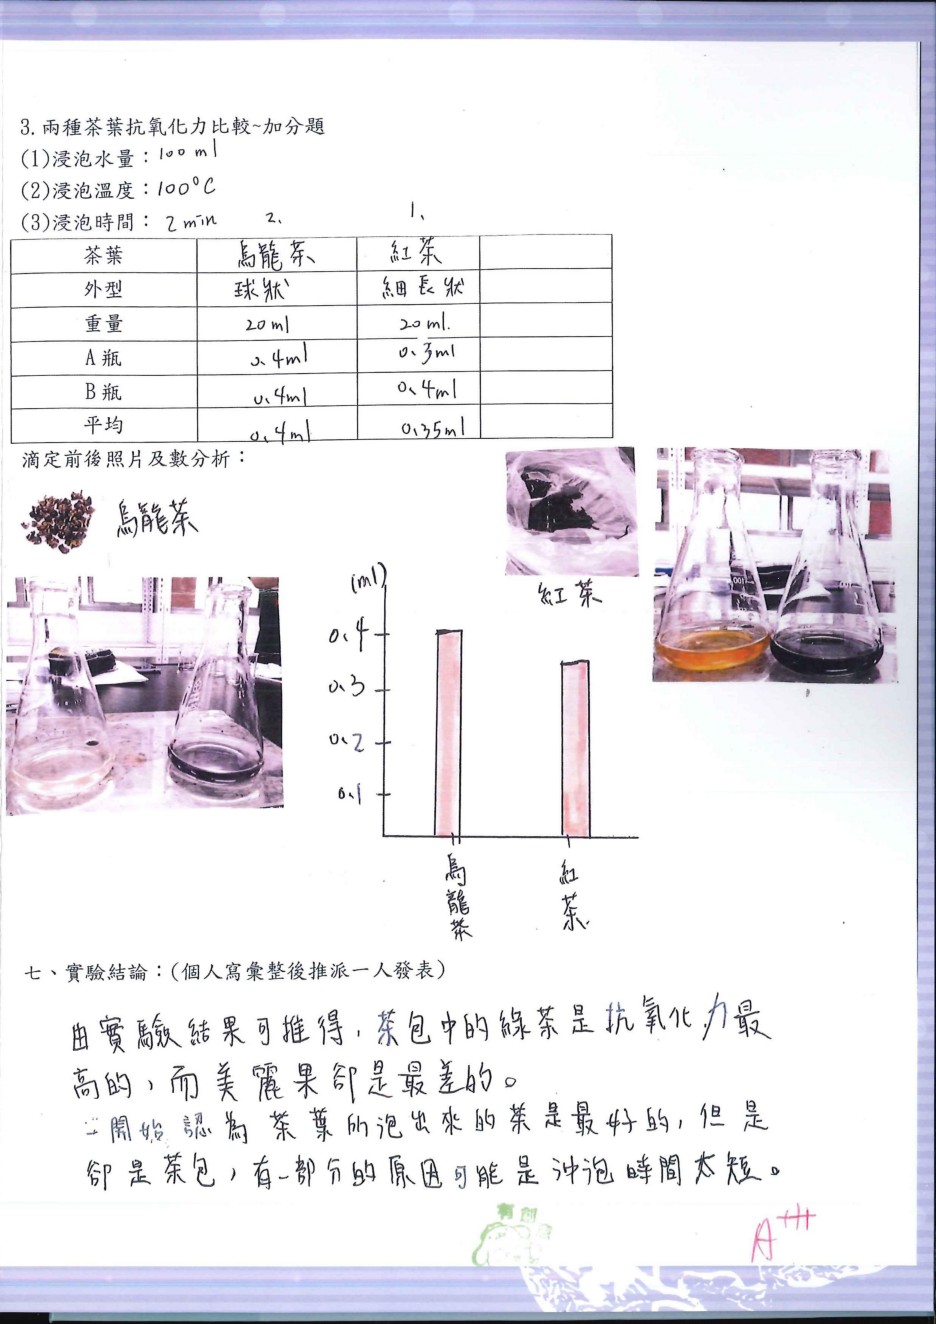 3.兩種茶葉抗氧化力比較~加分題
(1)浸泡水量：100 ml
(2)浸泡溫度：100°C
(3)浸泡時間：2 min
2、 1、
茶葉 烏龍茶 紅茶
外型 球狀 細長狀
重量 20ml 20ml.
A瓶 0.4ml 0.3ml
B瓶 0.4ml 0.4ml
平均 0.4ml 0.35ml
滴定前後照片及數分析：
烏龍茶
紅茶
(ml)
0.4
0.3
0.2
0.1
烏龍茶
紅茶
七、實驗結論：(個人寫彙整後推派一人發表)
由實驗結果可推得，茶包中的綠茶是抗氧化力最
高的，而美麗果卻是最差的。
一開始認為茶葉所泡出來的茶是最好的，但是
卻是茶包，有一部分的原因可能是沖泡時間太短。
有創意
A+++